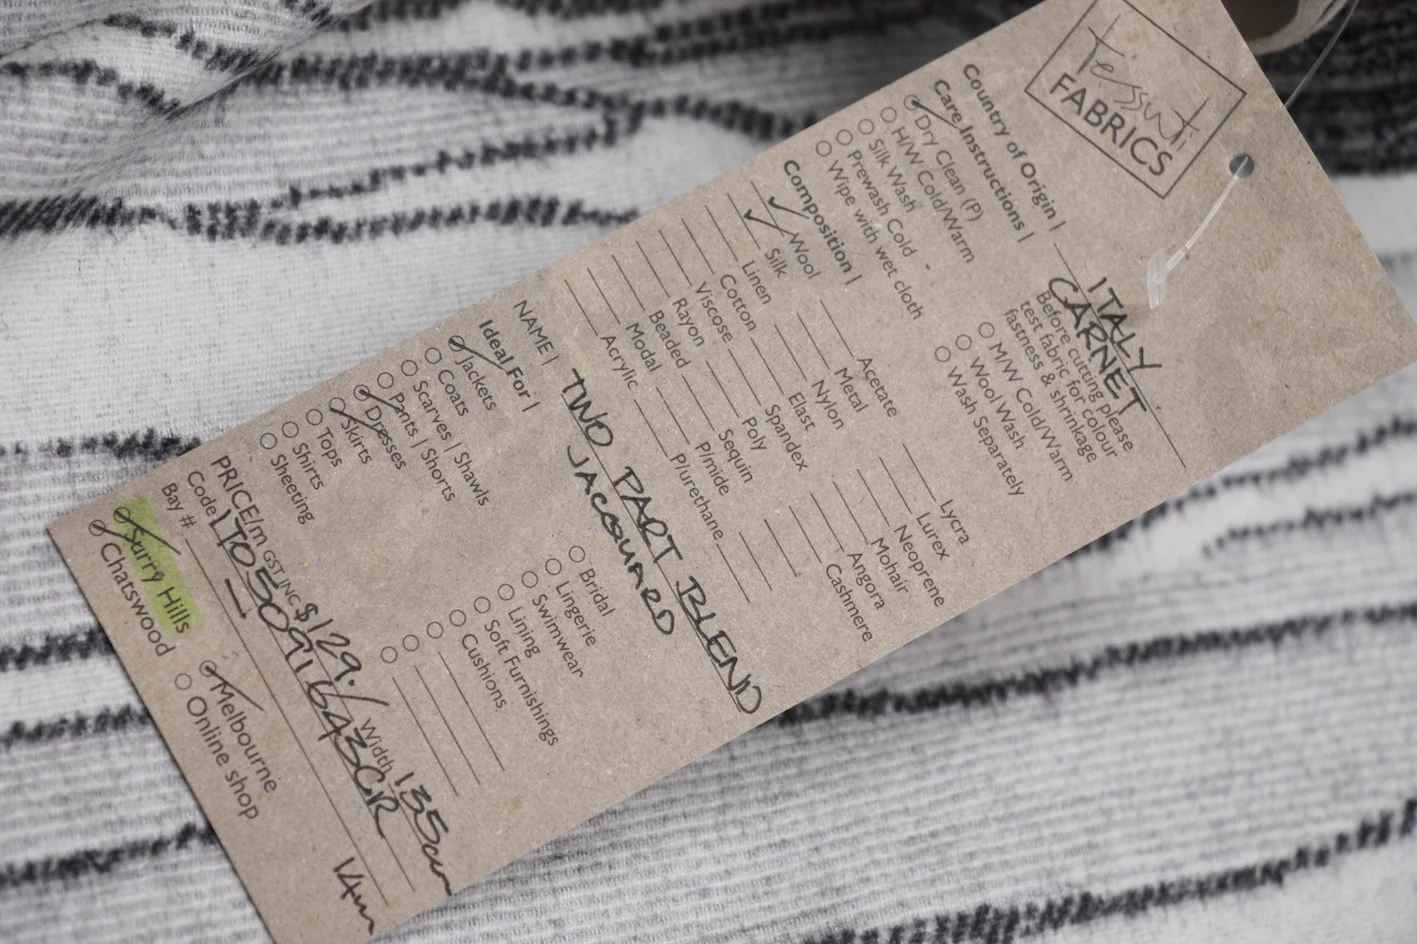 Tessuti
FABRICS
Country of Origin | ITALY
CARNET
Care Instructions |
Before cutting please
test fabric for colour
fastness & shrinkage
Dry Clean (P)
H/W Cold/Warm
Silk Wash
Prewash Cold
Wipe with wet cloth
M/W Cold/Warm
Wool Wash
Wash Separately
Composition |
Wool
Silk
Linen
Cotton
Viscose
Rayon
Beaded
Modal
Acrylic
Acetate
Metal
Nylon
Elast
Spandex
Poly
Sequin
P/mide
P/urethane
Lycra
Lurex
Neoprene
Mohair
Angora
Cashmere
NAME | TWO PART BLEND
JACQUARD
Ideal For |
Jackets
Coats
Scarves | Shawls
Pants | Shorts
Dresses
Skirts
Tops
Shirts
Sheeting
Bridal
Lingerie
Swimwear
Lining
Soft Furnishings
Cushions
PRICE/m GST INC $129.- Width 135cm
Code LT05091643CR
Bay # - 14m
Surry Hills
Chatswood
Melbourne
Online shop